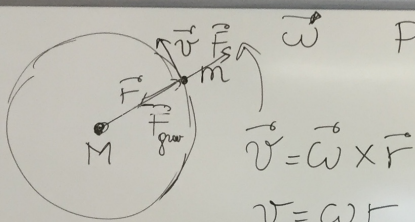 v⃗ F⃗s ω⃗ P
m
F⃗ F⃗grav
M
v⃗ = ω⃗ × r⃗
v = ωr